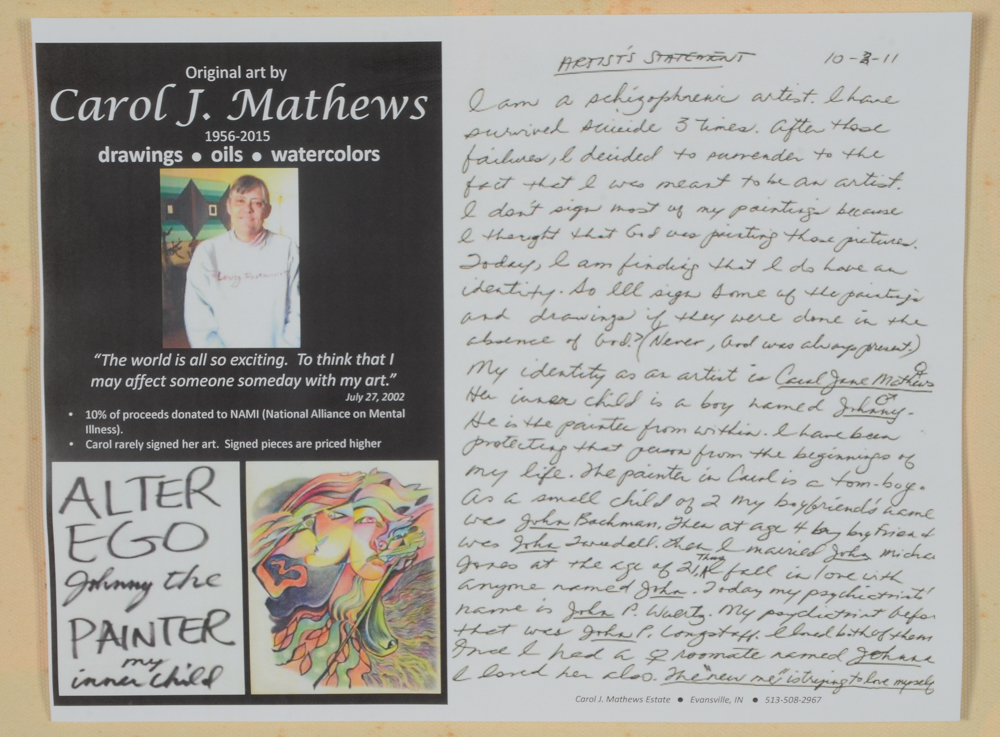 Original art by
Carol J. Mathews
1956-2015
drawings ● oils ● watercolors
“The world is all so exciting. To think that I
may affect someone someday with my art.”
July 27, 2002
• 10% of proceeds donated to NAMI (National Alliance on Mental
Illness).
• Carol rarely signed her art. Signed pieces are priced higher
ALTER
EGO
Johnny the
PAINTER
my
inner child
ARTIST'S STATEMENT 10-3-11
I am a schizophrenic artist. I have
survived suicide 3 times. After those
failures, I decided to surrender to the
fact that I was meant to be an artist.
I don't sign most of my paintings because
I thought that God was painting those pictures.
Today, I am finding that I do have an
identity. So I'll sign some of the paintings
and drawings if they were done in the
absence of God? (Never, God was always present.)
My identity as an artist is Carol Jane Mathews ♀
Her inner child is a boy named Johnny ♂.
He is the painter from within. I have been
protecting that person from the beginnings of
my life. The painter in Carol is a tom-boy.
As a small child of 2 my boyfriend's name
was John Bachman. Then at age 4 boyfriend
was John Twedell. Then I married John Micha
Jones at the age of 21. Then I fall in love with
anyone named John. Today my psychiatrist'
name is John P. Wuertz. My psychiatrist befor
that was John P. Longstaff. I loved both of them
Once I had a ♀ roomate named Johnna
I loved her also. The "new me" is trying to love myself
Carol J. Mathews Estate ● Evansville, IN ● 513-508-2967